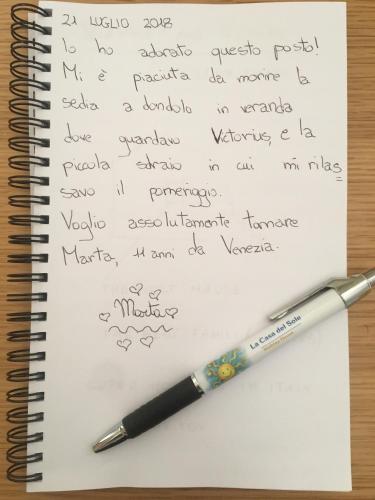 21 LUGLIO 2018
Io ho adorato questo posto!
Mi è piaciuta da morire la
sedia a dondolo in veranda
dove guardavo Victorius, e la
piccola sdraio in cui mi rilas
savo il pomeriggio.
Voglio assolutamente tornare
Marta, 11 anni da Venezia.
Marta
La Casa del Sole